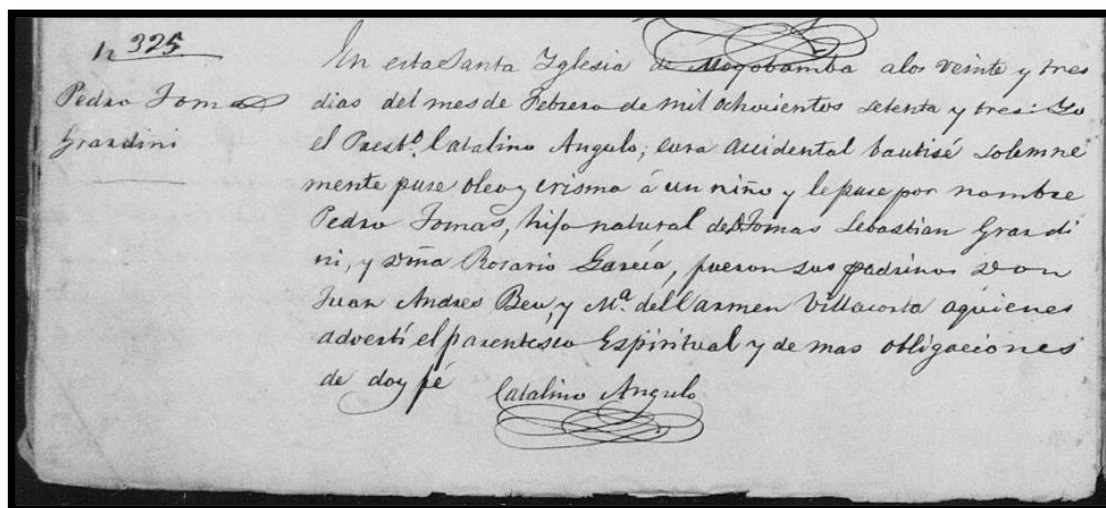 n 325
Pedro Tomas
Grandini
En esta Santa Iglesia de Moyobamba a los veinte y tres
dias del mes de Febrero de mil ochocientos setenta y tres: Yo
el Presbº. Catalino Angulo; cura accidental bautisé solemne
mente puse oleo y crisma á un niño y le puse por nombre
Pedro Tomas, hijo natural de D Tomas Sebastian Grandi
ni, y Doña Rosario García, fueron sus padrinos Don
Juan Andres y Mª. del Carmen Villacorta aquienes
advertí el parentesco Espiritual y de mas obligaciones
de doy fé
Catalino Angulo